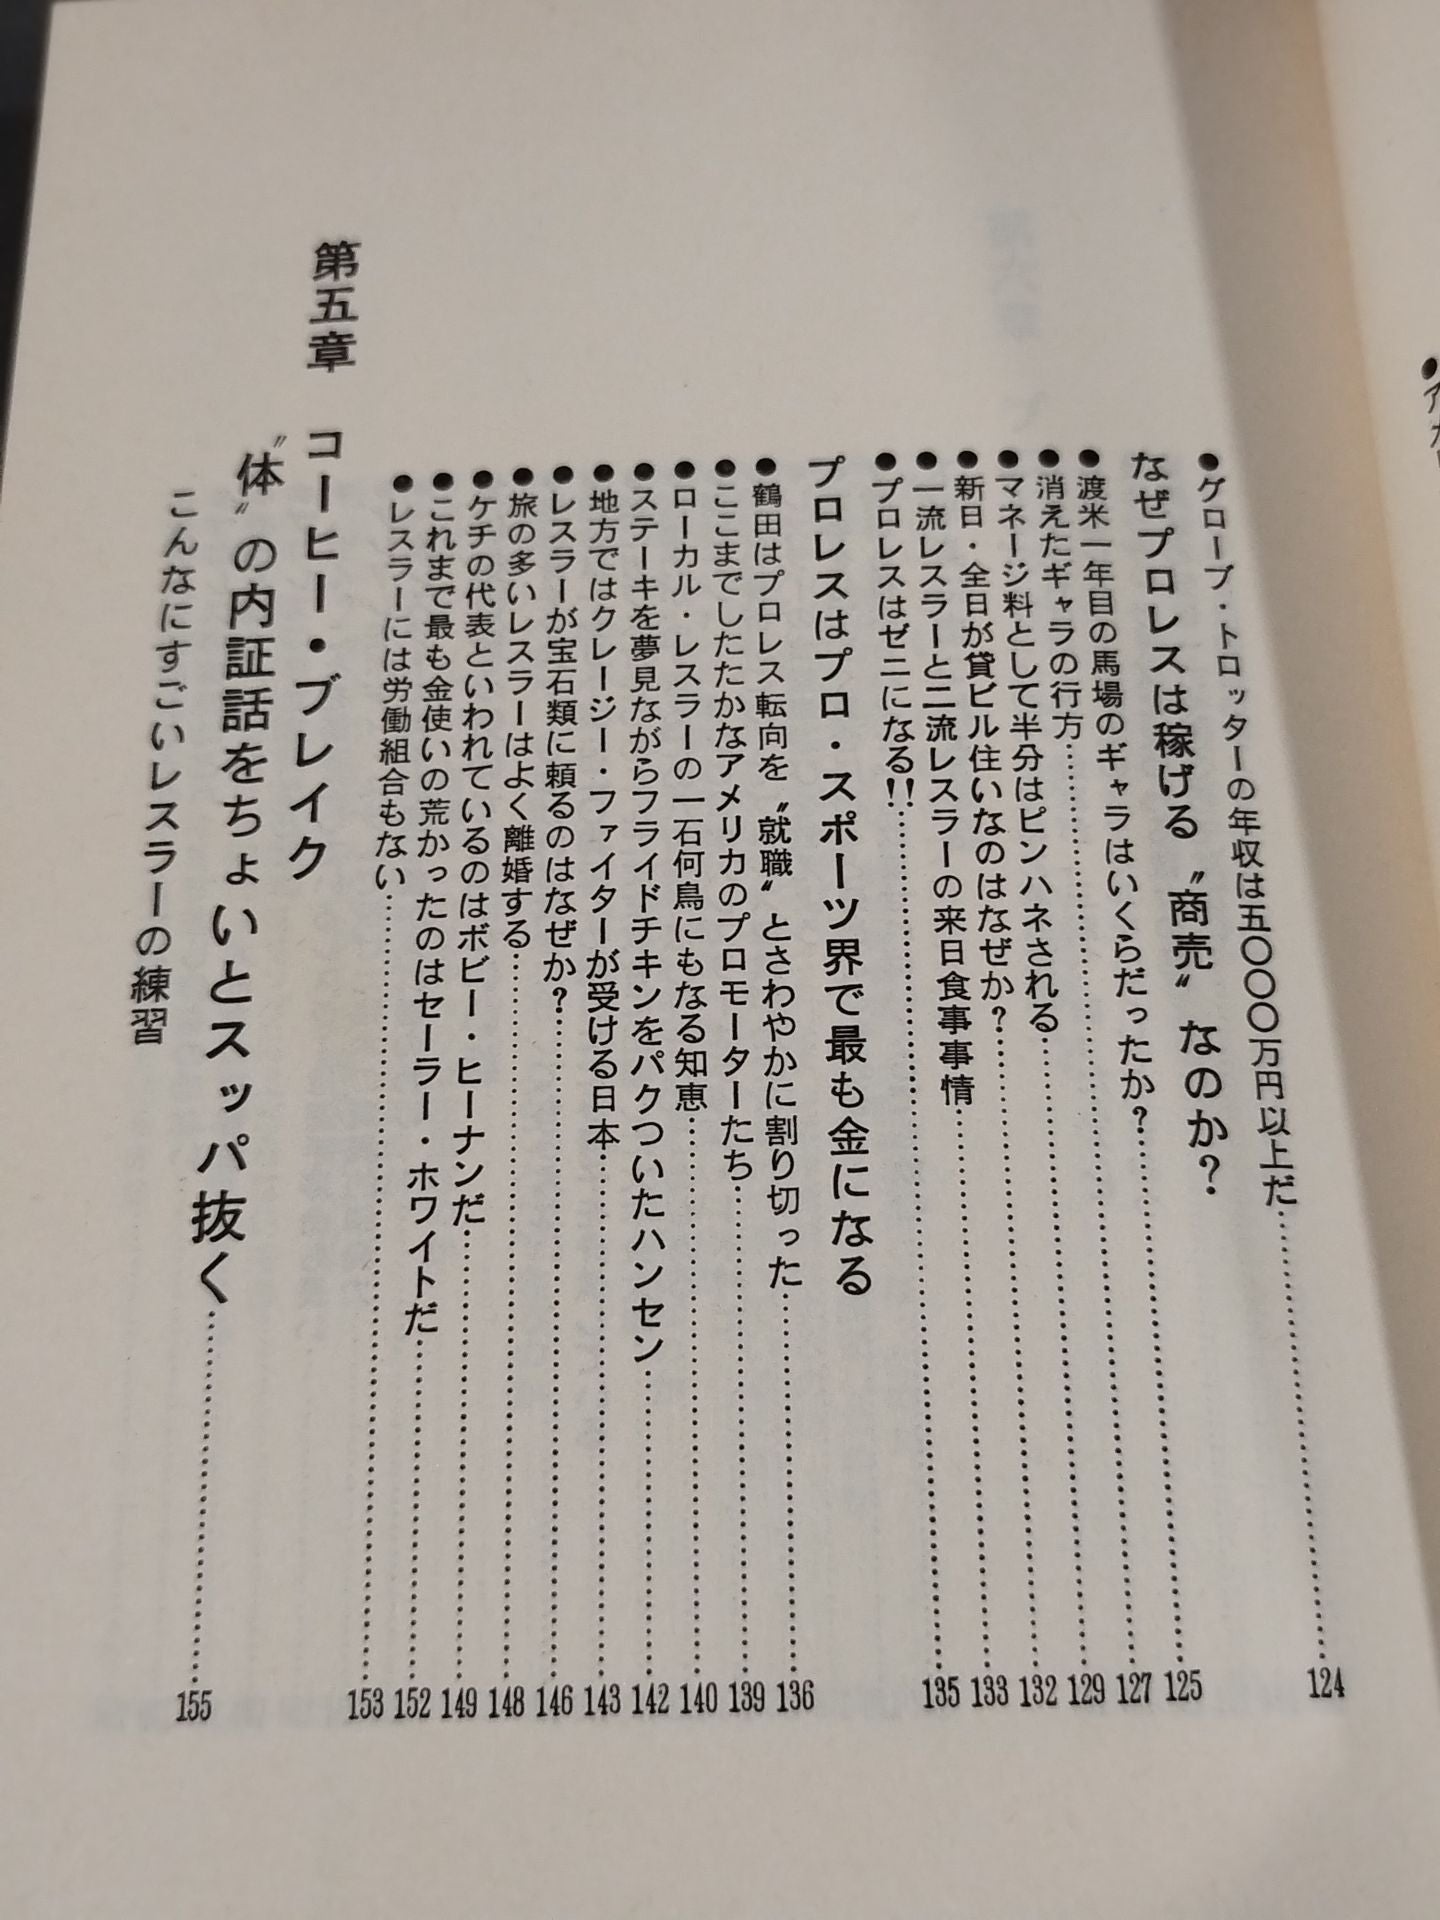 ●グローブ・トロッターの年収は五〇〇〇万円以上だ……124
なぜプロレスは稼げる〝商売〟なのか？
●渡米一年目の馬場のギャラはいくらだったか？……125
●消えたギャラの行方……127
●マネージ料として半分はピンハネされる……129
●新日・全日が貸ビル住いなのはなぜか？……132
●一流レスラーと二流レスラーの来日食事事情……133
●プロレスはゼニになる!!……135
プロレスはプロ・スポーツ界で最も金になる
●鶴田はプロレス転向を〝就職〟とさわやかに割り切った……136
●ここまでしたたかなアメリカのプロモーターたち……139
●ローカル・レスラーの一石何鳥にもなる知恵……140
●ステーキを夢見ながらフライドチキンをパクついたハンセン……142
●地方ではクレージー・ファイターが受ける日本……143
●レスラーが宝石類に頼るのはなぜか？……146
●旅の多いレスラーはよく離婚する……148
●ケチの代表といわれているのはボビー・ヒーナンだ……149
●これまで最も金使いの荒かったのはセーラー・ホワイトだ……152
●レスラーには労働組合もない……153
第五章 コーヒー・ブレイク
〝体〟の内証話をちょいとスッパ抜く……155
こんなにすごいレスラーの練習